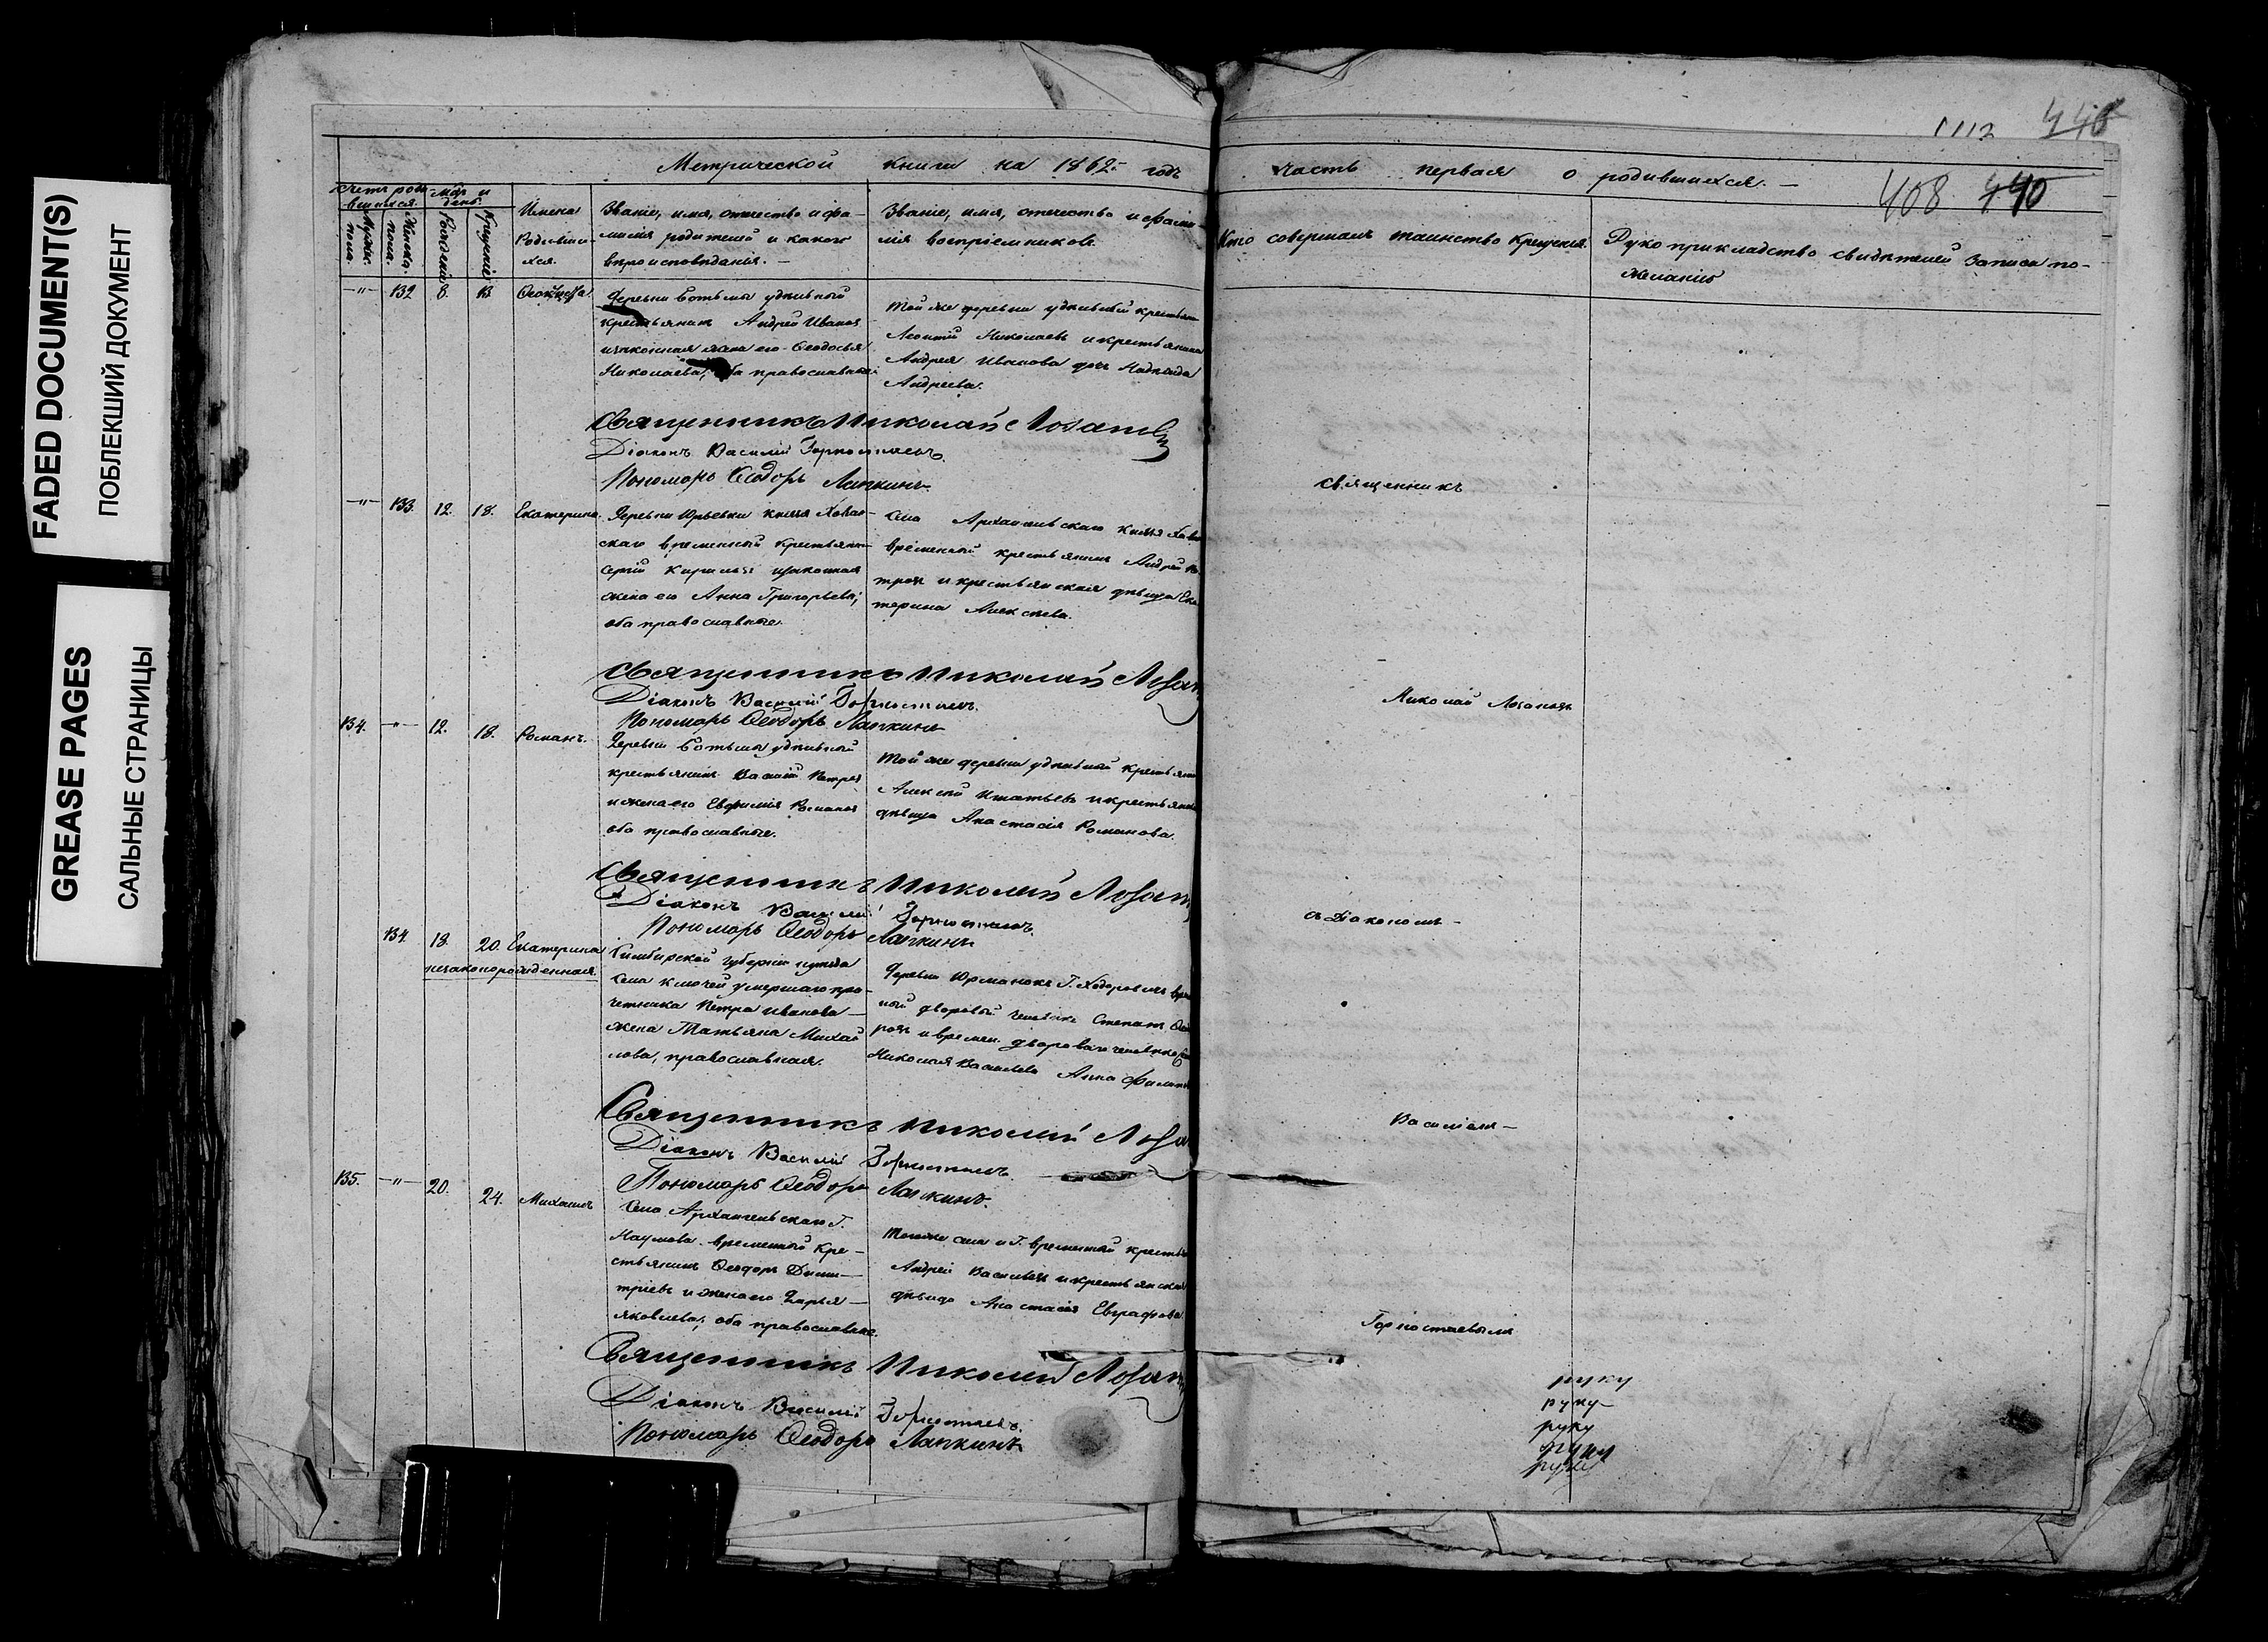 FADED DOCUMENT(S)
ПОБЛЕКШИЙ ДОКУМЕНТ
GREASE PAGES
САЛЬНЫЕ СТРАНИЦЫ
Метрической книги на 1862 годъ
часть первая о родившихся.
1112 440
408 440
Имена Родивши-хся.
Званіе, имя, отечество и фа-
милія родителей и какого
вѣроисповѣданія.
Званіе, имя, отечество и фами-
лія воспріемниковъ.
Кто совершалъ таинство крещенія.
Рукоприкладство свидѣтелей записи по-
желанію
—"— 132 8. 13.
Деревни Ботьмы удѣльный
крестьянинъ Андрей Ивановъ
и законная жена его Ѳеодосья
Николаева, оба православные.
Той же деревни удѣльный крестьян
Леонтій Николаевъ и крестьянина
Андрея Иванова дочь Надежда
Андреева.
Священникъ Николай
Діаконъ Василій Горностаевъ.
Пономарь Ѳеодоръ Лапкинъ.
священникъ
—"— 133. 12. 18. Екатерина.
Деревни Юрьевки князя Хован-
скаго временный крестьянинъ
Сергій Кириловъ и законная
жена его Анна Григорьева;
оба православные.
Села Архангельскаго князя
временный крестьянинъ Андрей
и крестьянская дѣвица Ека
терина Алексѣева.
Священникъ Николай
Діаконъ Василій Горностаевъ.
Пономарь Ѳеодоръ Лапкинъ
Николай
134. —"— 12. 18. Романъ.
Деревни Ботьмы удѣльный
крестьянинъ Василій Петровъ
и жена его Евфимія Романова
оба православные.
Той же деревни удѣльный крестьянин
Алексѣй Игнатьевъ и крестьянская
дѣвица Анастасія Романова.
Священникъ Николай
Діаконъ Василій Горностаевъ.
Пономарь Ѳеодоръ Лапкинъ
съ Діакономъ
134 18. 20. Екатерина
незаконорожденная.
Симбирской губерніи
села Ключей умершаго при-
четника Петра Иванова
жена Татьяна Михай
лова, православная.
Деревни
ной дворовый человѣкъ Степанъ
и времен. двороваго человѣка
Николая Васильева Анна
Священникъ Николай
Діаконъ Василій Горностаевъ
Пономарь Ѳеодоръ Лапкинъ.
Василіемъ
135. —"— 20. 24. Михаилъ
Села Архангельскаго Г.
Наумова временный кре-
стьянинъ Ѳеодоръ Дими-
тріевъ и жена его Дарья
Яковлева; оба православные.
Того же села и Г. временный крестьян
Андрей Васильевъ и крестьянская
дѣвица Анастасія Евграфова
Священникъ Николай
Діаконъ Василій Горностаевъ.
Пономарь Ѳеодоръ Лапкинъ.
Горностаевымъ
руку
руку
руку
руку
руку